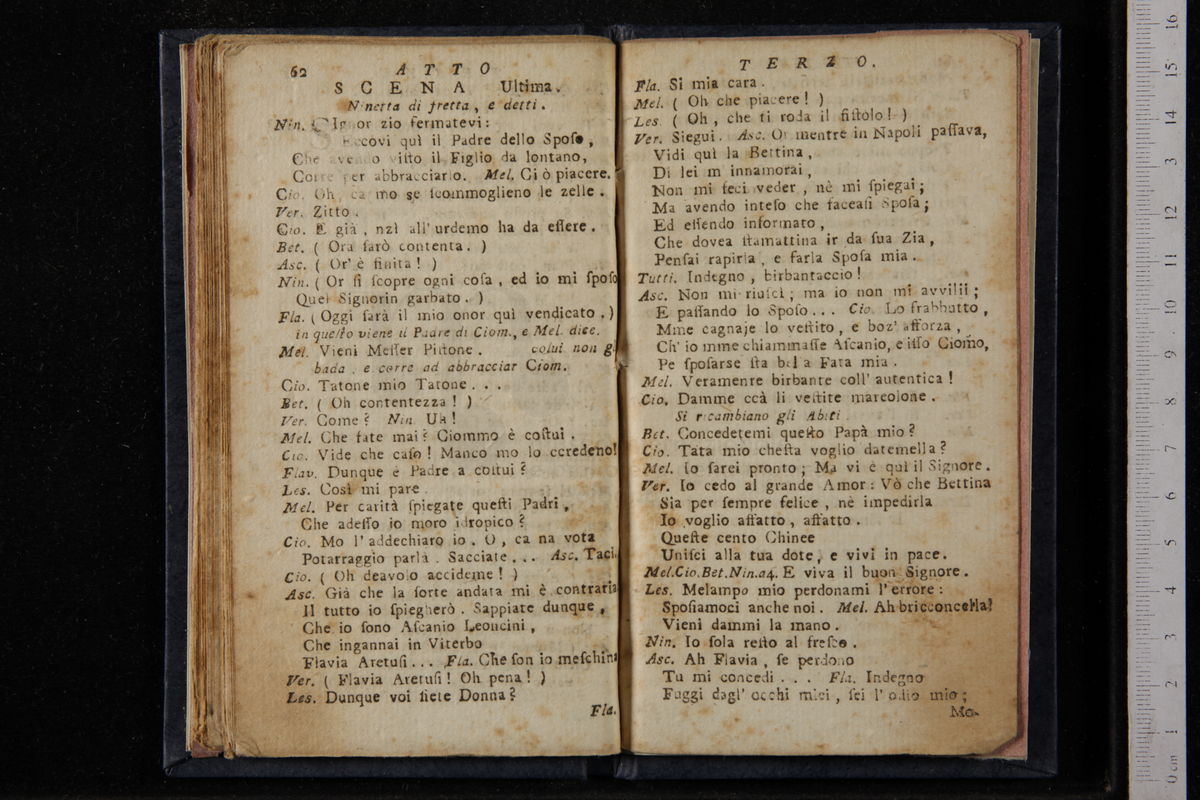 62 ATTO
SCENA Ultima.
Ninetta di fretta, e detti.
Nin. SIgnor zio fermatevi:
Eccovi quì il Padre dello Sposo,
Che avendo visto il Figlio da lontano,
Corre per abbracciarlo. Mel. Ci ò piacere.
Cio. Oh, ca mo se scommoglieno le zelle.
Ver. Zitto.
Cio. E già, nzì all'urdemo ha da essere.
Bet. ( Ora sarò contenta. )
Asc. ( Or' è finita! )
Nin. ( Or si scopre ogni cosa, ed io mi sposo
Quel Signorin garbato. )
Fla. ( Oggi sarà il mio onor quì vendicato. )
in questo viene il Padre di Ciom., e Mel. dice.
Mel. Vieni Messer Pittone. colui non gl
bada, e corre ad abbracciar Ciom.
Cio. Tatone mio Tatone...
Bet. ( Oh contentezza! )
Ver. Come? Nin. Uh!
Mel. Che fate mai? Ciommo è costui.
Cio. Vide che caso! Manco mo lo ccredeno!
Flav. Dunque è Padre a costui?
Les. Così mi pare
Mel. Per carità spiegate questi Padri,
Che adesso io moro idropico?
Cio. Mo l'addechiaro io. O, ca na vota
Potarraggio parlà. Sacciate... Asc. Taci.
Cio. ( Oh deavolo accideme! )
Asc. Già che la sorte andata mi è contraria
Il tutto io spiegherò. Sappiate dunque,
Che io sono Ascanio Leoncini,
Che ingannai in Viterbo
Flavia Aretusi... Fla. Che son io meschina
Ver. ( Flavia Aretusi! Oh pena! )
Les. Dunque voi siete Donna?
Fla.
TERZO.
Fla. Sì mia cara.
Mel. ( Oh che piacere! )
Les. ( Oh, che ti roda il fistolo! )
Ver. Siegui. Asc. Or mentre in Napoli passava,
Vidi quì la Bettina,
Di lei m'innamorai,
Non mi feci veder, nè mi spiegai;
Ma avendo inteso che faceasi Sposa;
Ed essendo informato,
Che dovea stamattina ir da sua Zia,
Pensai rapirla, e farla Sposa mia.
Tutti. Indegno, birbantaccio!
Asc. Non mi riuscì; ma io non mi avvilii;
E passando lo Sposo... Cio. Lo frabbutto,
Mme cagnaje lo vestito, e boz' afforza,
Ch'io mme chiammasse Ascanio, e isso Ciomo,
Pe sposarse sta bella Fata mia.
Mel. Veramenre birbante coll'autentica!
Cio. Damme ccà li vestite mareolone.
Si ricambiano gli Abiti.
Bet. Concedetemi questo Papà mio?
Cio. Tata mio chesta voglio datemella?
Mel. Io sarei pronto; Ma vi è quì il Signore.
Ver. Io cedo al grande Amor: Vò che Bettina
Sia per sempre felice, nè impedirla
Io voglio affatto, affatto.
Queste cento Chinee
Unisci alla tua dote, e vivi in pace.
Mel.Cio.Bet.Nin.a4. E viva il buon Signore.
Les. Melampo mio perdonami l'errore:
Sposiamoci anche noi. Mel. Ah bricconcella!
Vieni dammi la mano.
Nin. Io sola resto al fresco.
Asc. Ah Flavia, se perdono
Tu mi concedi... Fla. Indegno
Fuggi dagl' occhi miei, sei l'odio mio;
Mo-